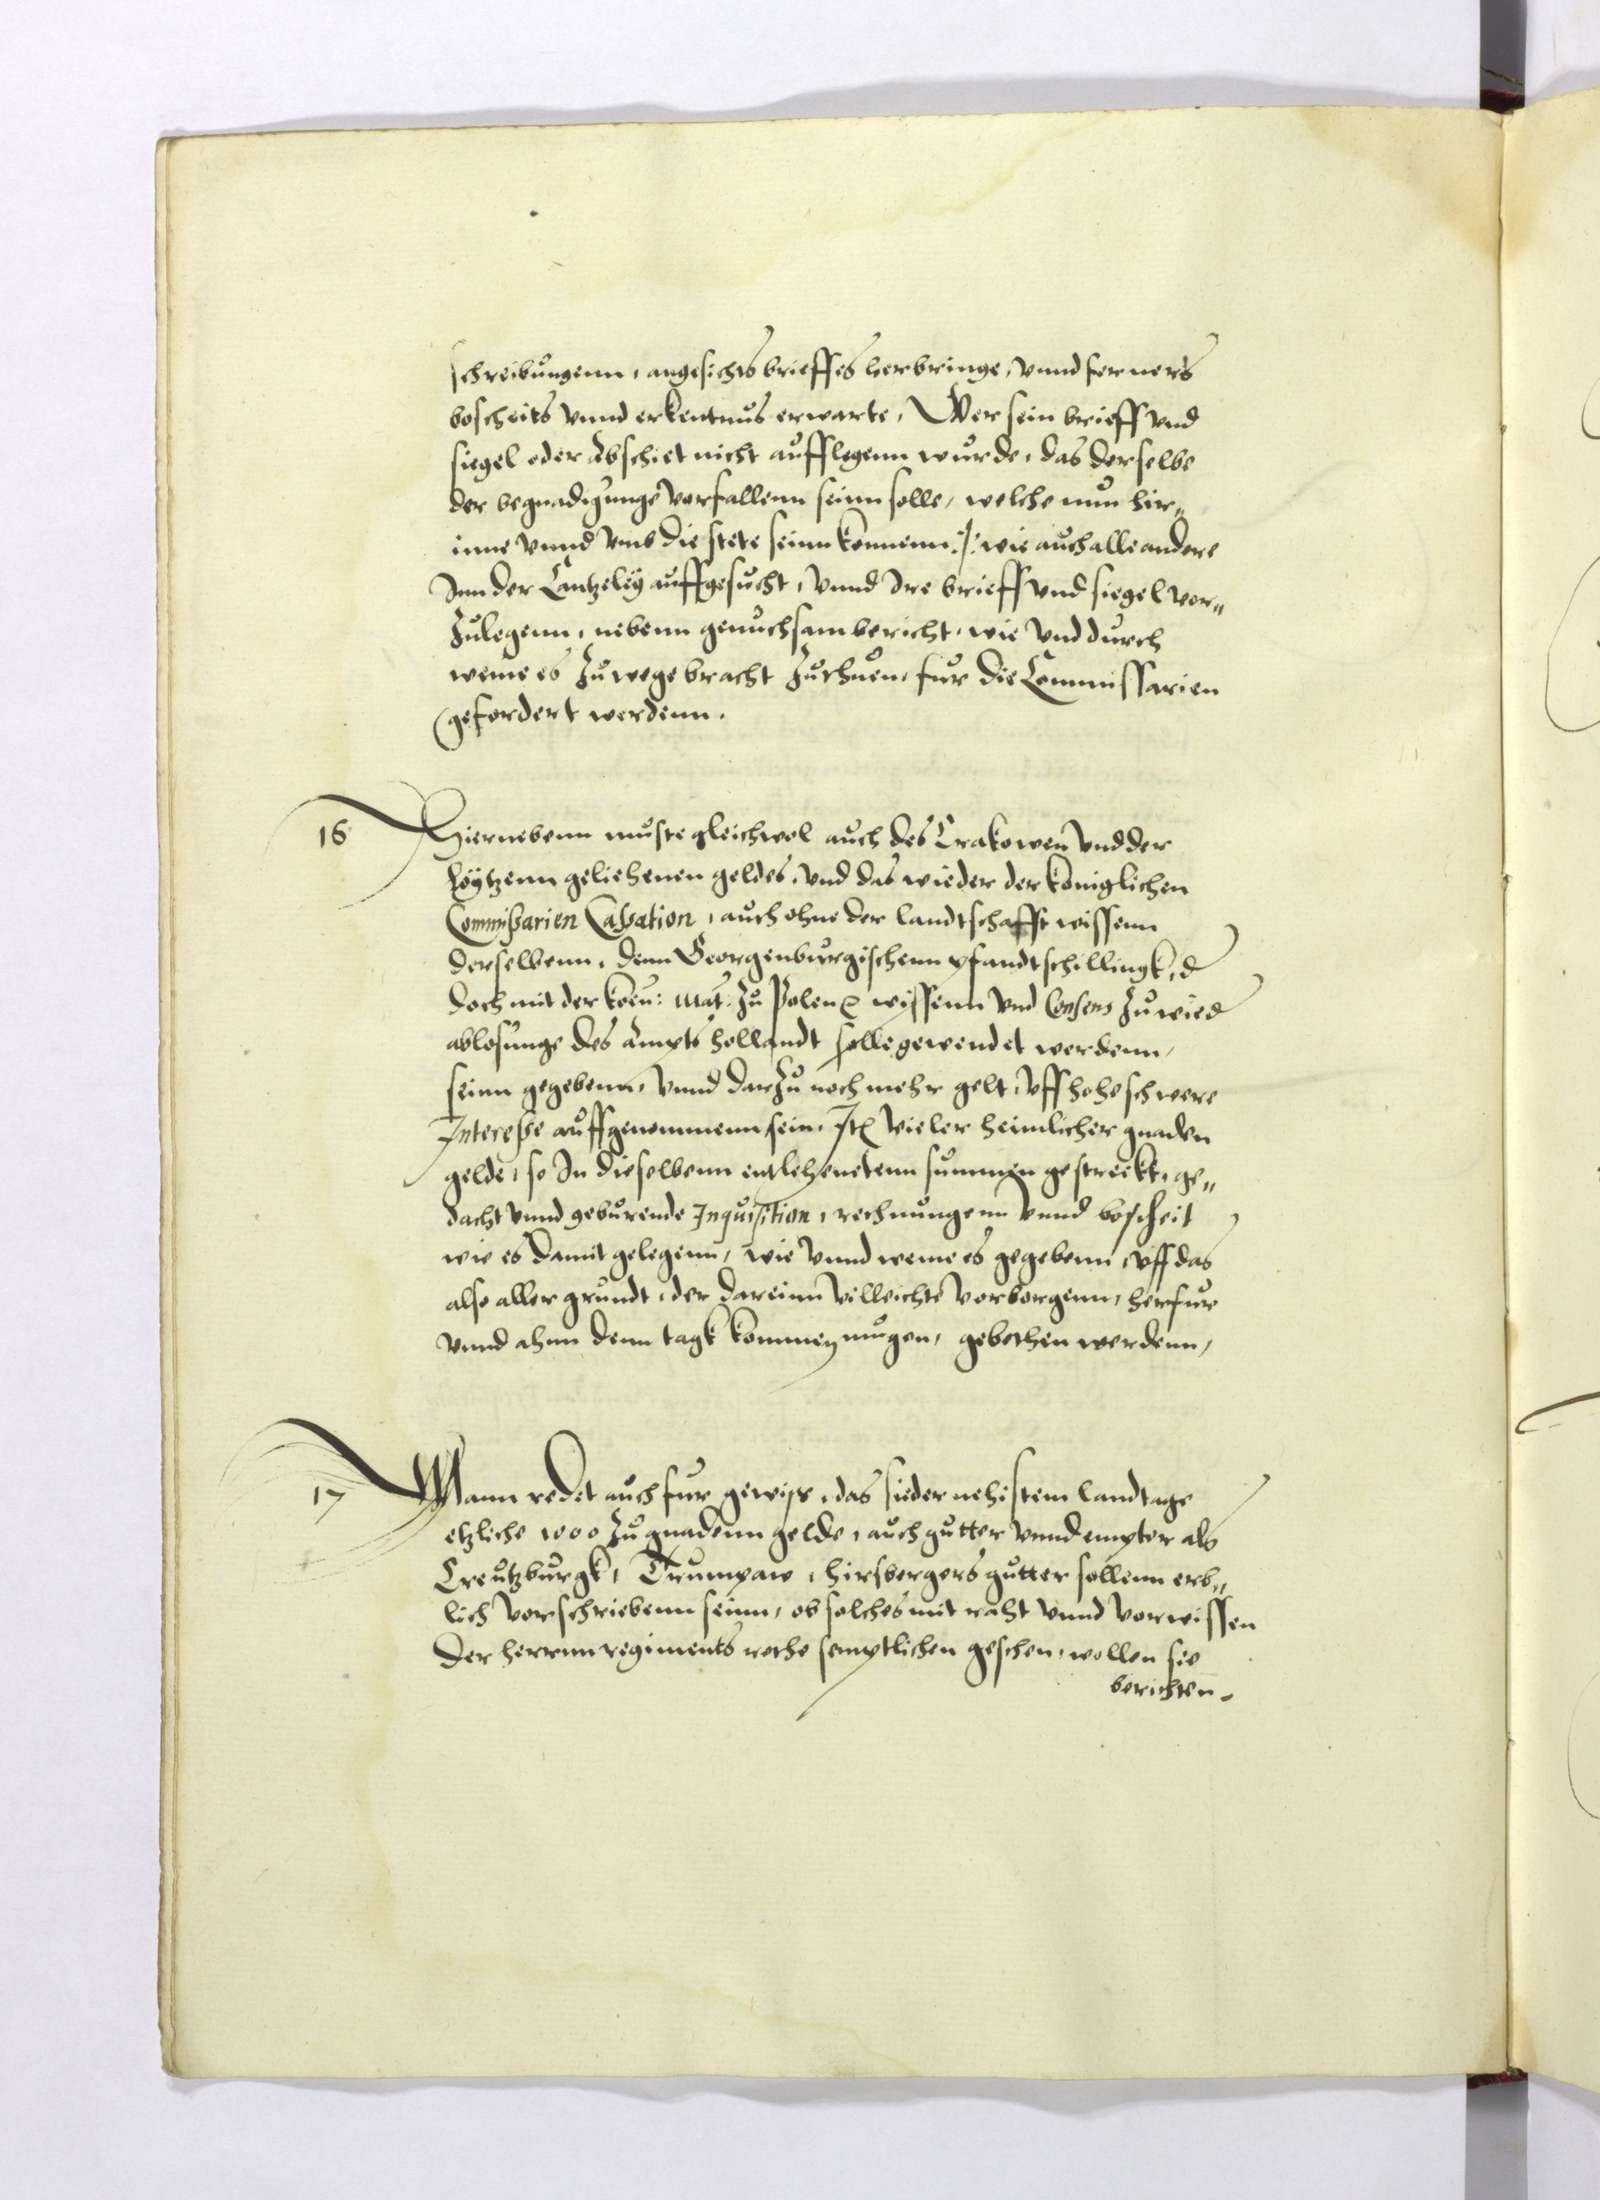 schreibungenn, angesichts brieffes herbringe, vnnd ferners
bescheits vnnd erkentnus erwarte, Wer sein brieff vnd
siegel oder Abschiet nicht aufflegenn wurde, das derselbe
der begnadigunge vorfallenn seinn solle, welche nun hir„
inne vnnd vmb die stete seinn konnenn :/: wie auch alle andere
Inn der Cantzeley auffgesucht, vnnd Ire brieff vnd siegel vor„
Zulegenn, nebenn genuchsam bericht, wie vnd durch
weme es Zuwege bracht Zuthuen, fur die Commissarien
gefordert werdenn.
16 Hiernebenn muste gleichwol auch des Crakowen vnd der
Loytzenn geliehenen geldes, vnd das wieder der koniglichen
Commissarien Cassation, auch ohne der landtschafft wissenn
derselbenn, denn Georgenburgischenn pfandtschillingk, d
doch mit der kön: Mat: Zu Polen wissenn vnd Consens Zu wied
ablosunge des Ampts hollandt solle gewendet werdenn,
seinn gegebenn, vnnd darZu noch mehr gelt, vff hohe schwere
Interesse auffgenommenn sein, Ite vieler heimlicher gnaden
gelde, so In dieselbenn entlehenetenn summen gestreckt, ge„
dacht vnnd geburende Inquisition, rechnungenn vnnd bescheit
wie es damit gelegenn, wie vnnd weme es gegebenn, vff das
also aller grundt, der dareinn villeichte vorborgenn, herfur
vnnd ahnn denn tagk kommen mugen, gebethen werdenn,
17 Mann redet auch fur gewiss, das sieder nehistem landtage
etzliche 1000 Zu gnadenn gelde, auch gutter vnnd empter als
Creutzburgk, Trumpaw, hirsbergers gutter sollenn erb„
lich vorschriebenn seinn, ob solches mit raht vnnd vorwissen
der herrnn regiments rethe semptlichen geschen, wollen sie
berichten.